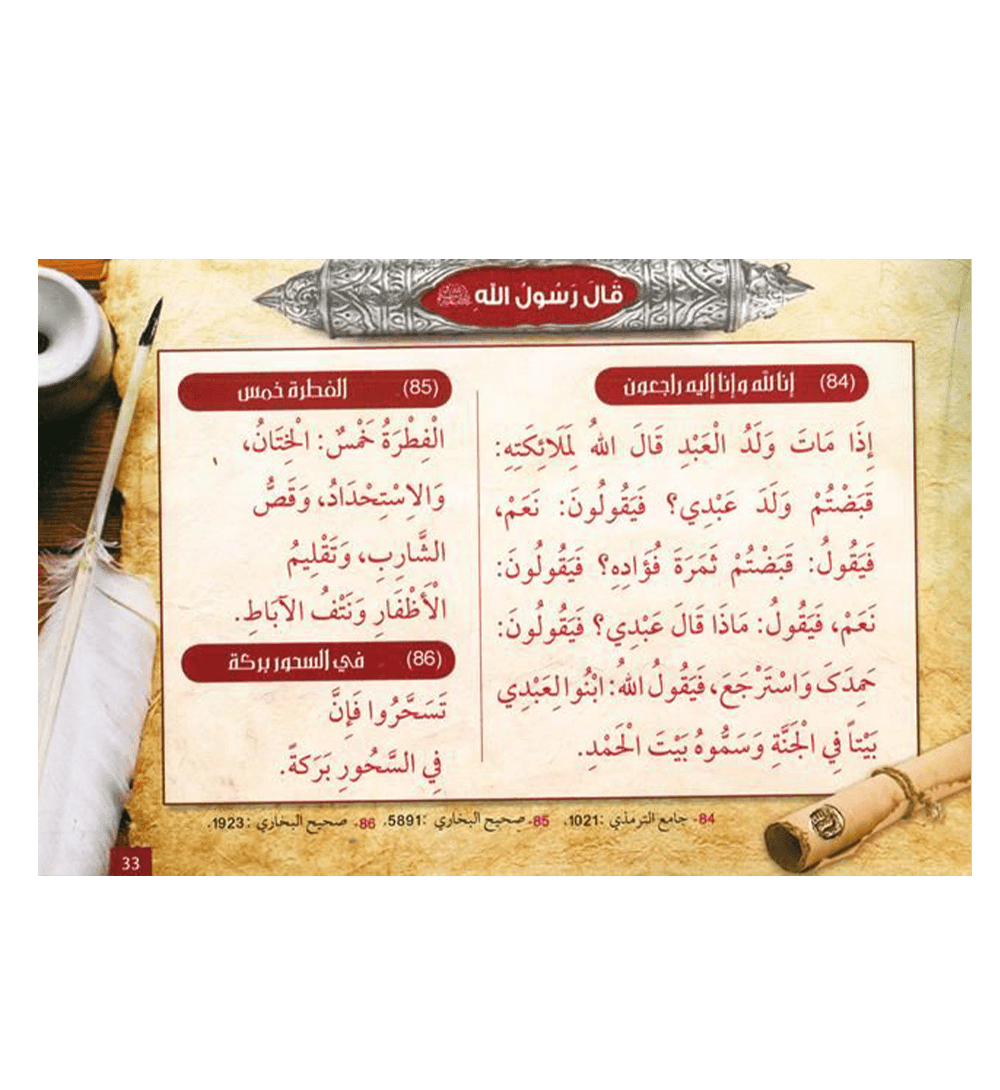 قَالَ رَسُولُ اللهِ ﷺ
(84) إنا لله وإنا إليه راجعون
إِذَا مَاتَ وَلَدُ الْعَبْدِ قَالَ اللهُ لِمَلَائِكَتِهِ:
قَبَضْتُمْ وَلَدَ عَبْدِي؟ فَيَقُولُونَ: نَعَمْ،
فَيَقُولُ: قَبَضْتُمْ ثَمَرَةَ فُؤَادِهِ؟ فَيَقُولُونَ:
نَعَمْ، فَيَقُولُ: مَاذَا قَالَ عَبْدِي؟ فَيَقُولُونَ:
حَمِدَكَ وَاسْتَرْجَعَ، فَيَقُولُ اللهُ: ابْنُوا لِعَبْدِي
بَيْتاً فِي الْجَنَّةِ وَسَمُّوهُ بَيْتَ الْحَمْدِ.
(85) الفطرة خمس
الْفِطْرَةُ خَمْسٌ: الْخِتَانُ،
وَالِاسْتِحْدَادُ، وَقَصُّ
الشَّارِبِ، وَتَقْلِيمُ
الْأَظْفَارِ وَنَتْفُ الآبَاطِ.
(86) في السحور بركة
تَسَحَّرُوا فَإِنَّ
فِي السَّحُورِ بَرَكَةً.
84- جامع الترمذي :1021، 85- صحيح البخاري :5891، 86- صحيح البخاري :1923.
33